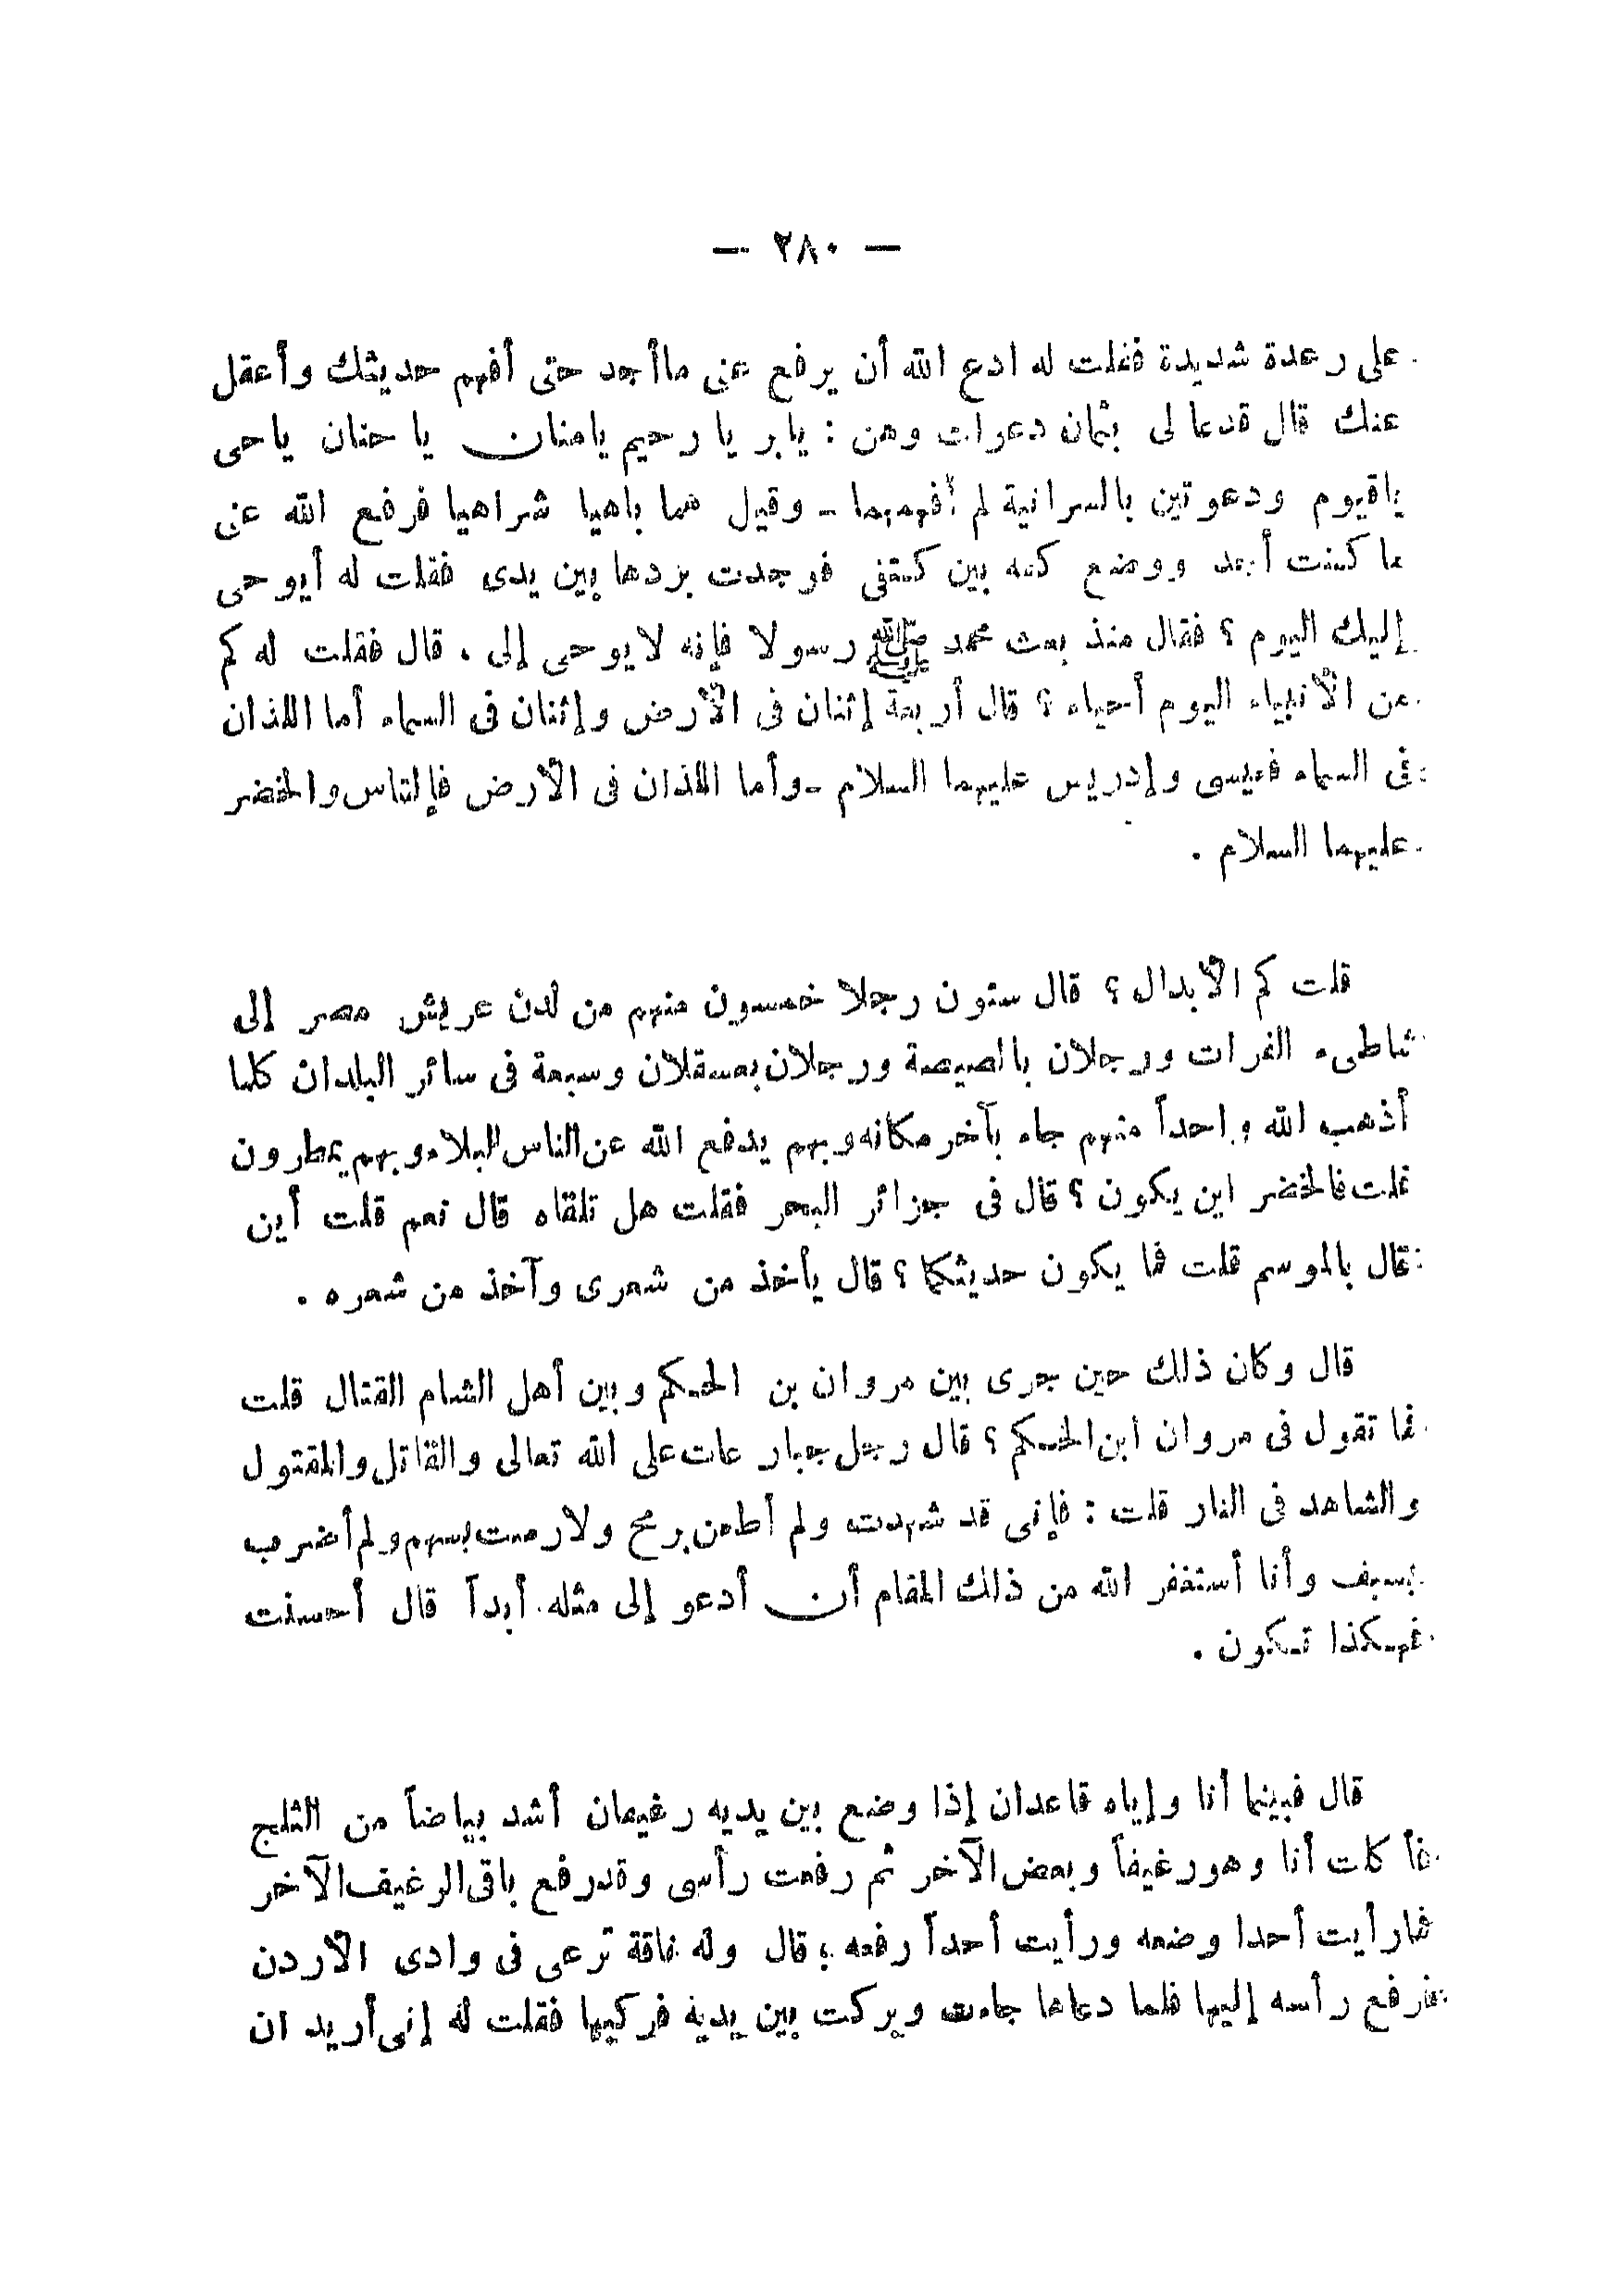 — ٢٨٠ —
على رعدة شديدة فقلت له ادع الله أن يرفع عنى ماأجد حتى أفهم حديثك وأعقل
عنك قال قدعا لى بثمان دعوات وهن : يابر يا رحيم يامنان يا حنان ياحى
ياقيوم ودعوتين بالسرانية لم أفهمهما - وقيل هما باهيا شراهيا فرفع الله عنى
ما كنت أجد ووضع كفه بين كتفى فوجدت بردها بين يدى فقلت له أيوحى
إليك اليوم ؟ فقال منذ بعث محمد ﷺ رسولا فإنه لايوحى إلى . قال فقلت له كم
من الأنبياء اليوم أحياء ؟ قال أربعة إثنان فى الأرض وإثنان فى السماء أما اللذان
فى السماء فعيسى وإدريس عليهما السلام - وأما اللذان فى الأرض فإلتاس والخضر
عليهما السلام .
قلت كم الأبدال ؟ قال ستون رجلا خمسون منهم من لدن عريش مصر إلى
شاطىء الفرات ورجلان بالصيصة ورجلان بعسقلان وسبعة فى سائر البلدان كلما
أذهب الله واحداً منهم جاء بآخر مكانه وبهم يدفع الله عن الناس البلاء وبهم يمطرون
قلت فالخضر اين يكون ؟ قال فى جزائر البحر فقلت هل تلقاه قال نعم قلت أين
قال بالموسم قلت فما يكون حديثكما ؟ قال يأخذ من شعرى وآخذ من شعره .
قال وكان ذلك حين جرى بين مروان بن الحكم وبين أهل الشام القتال قلت
فما تقول فى مروان ابن الحكم ؟ قال رجل جبار عات على الله تعالى والقاتل والمقتول
والشاهد فى النار قلت : فإنى قد شهدت ولم أطعن برمح ولا رميت بسهم ولم أضرب
بسيف وأنا أستغفر الله من ذلك المقام أن أدعو إلى مثله أبداً قال أحسنت
فهكذا تكون .
قال فبينما أنا وإياه قاعدان إذا وضع بين يديه رغيفان أشد بياضاً من الثلج
فأ كلت أنا وهو رغيفاً وبعض الآخر ثم رفعت رأسى وقدرفع باقى الرغيف الآخر
فمارأيت أحدا وضعه ورأيت أحداً رفعه ؛ قال وله ناقة ترعى فى وادى الأردن
فرفع رأسه إليها فلما دعاها جاءت وبركت بين يديه فركبها فقلت له إنى أريد ان